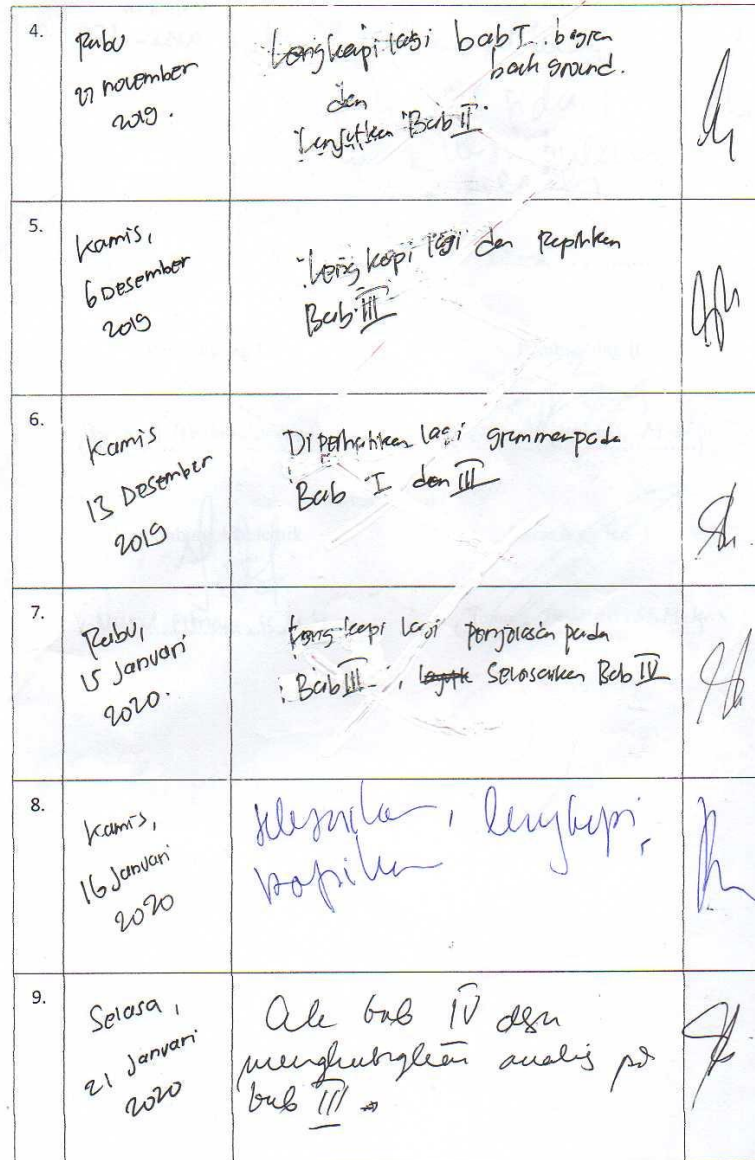 4.
Rabu
27 november
2019.
Lengkapi lagi bab I. bagian
back ground.
dan
Lanjutkan Bab II
5.
Kamis,
6 Desember
2019
Lengkapi lagi dan Rapihkan
Bab III
6.
Kamis
13 Desember
2019
Diperhatikan lagi grammar pada
Bab I dan III
7.
Rabu,
15 Januari
2020.
Lengkapi lagi penjelasan pada
Bab III, Selesaikan Bab IV
8.
Kamis,
16 Januari
2020
selesaikan, lengkapi,
rapikan
9.
Selasa,
21 Januari
2020
bab IV dgn
menghubungkan analis pd
bab III